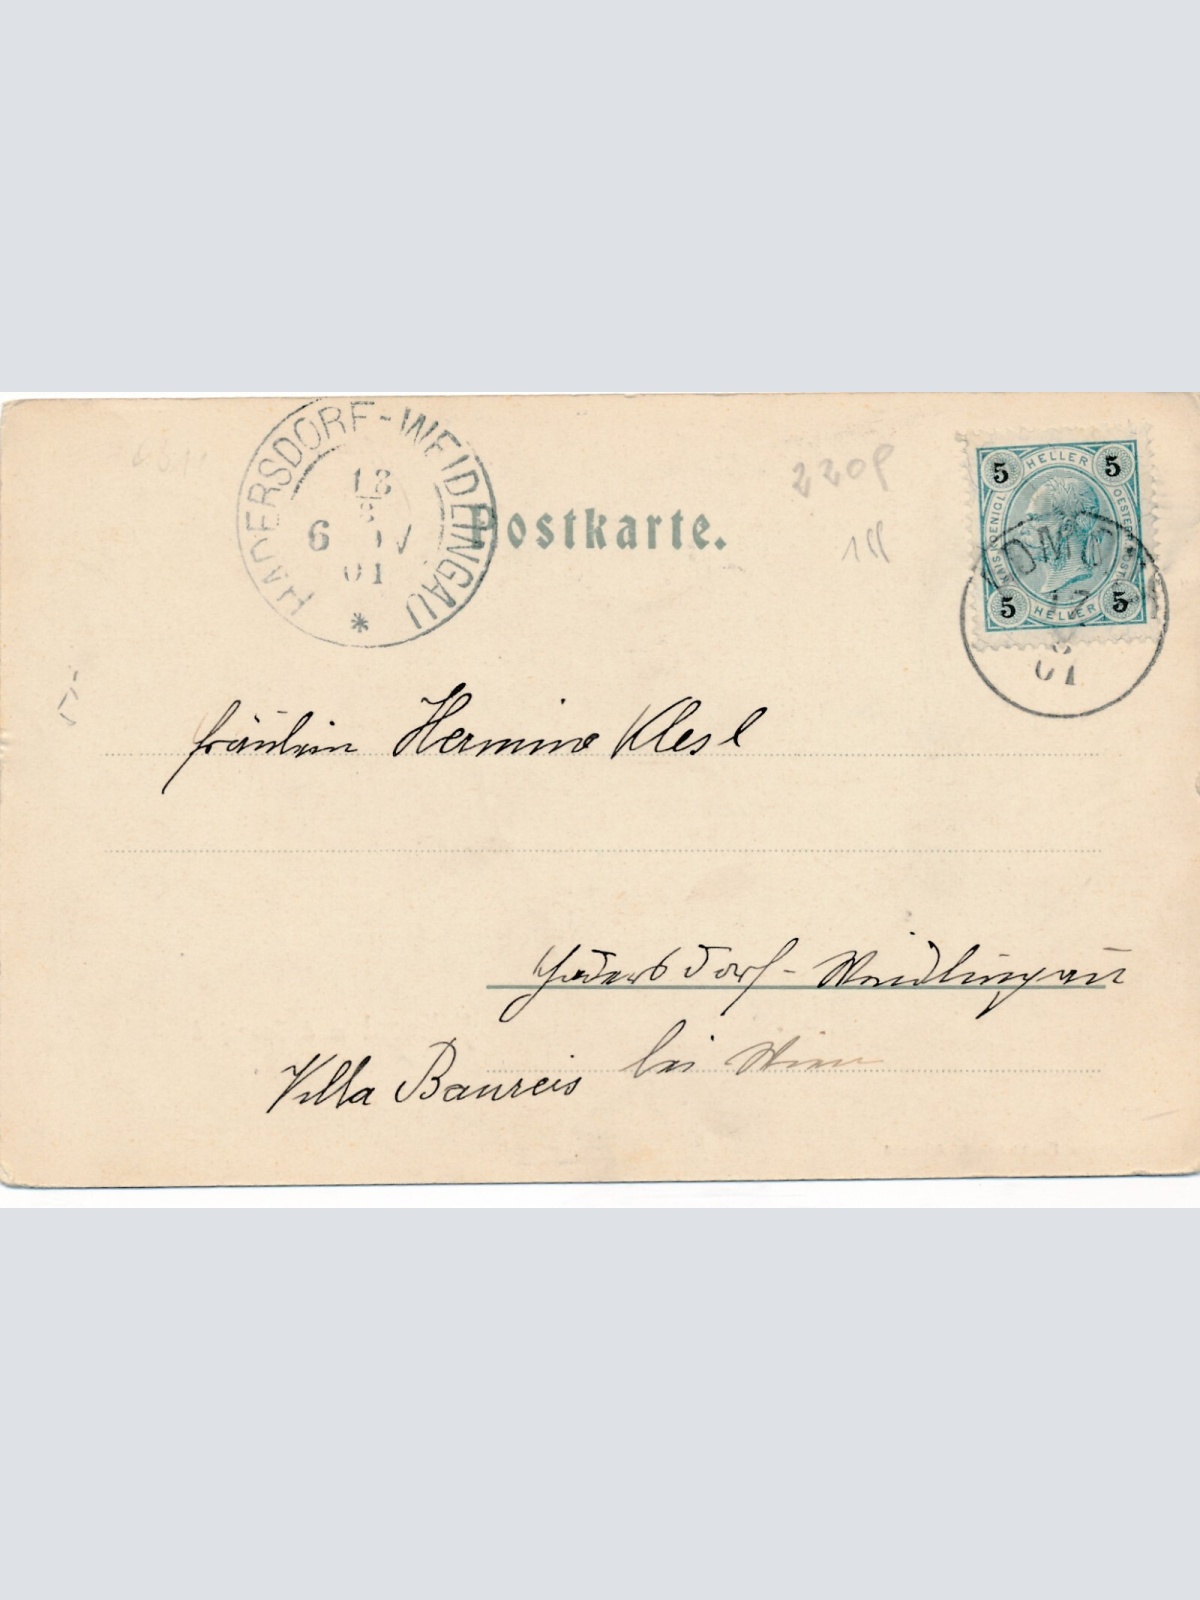 HADERSDORF-WEIDLINGAU
13
8
6 V
01
*
Postkarte.
2209
5 HELLER 5
5 HELLER 5
01
Fräulein Hermine Klesl
Hadersdorf-Weidlingau
bei Wien
Villa Baureis